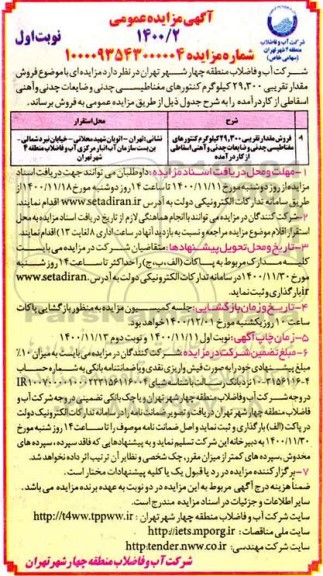 آگهی مزایده عمومی
۱۴۰۰/۲
نوبت اول
شماره مزایده ۱۰۰۰۰۹۳۵۴۳۰۰۰۰۰۴
شرکت آب و فاضلاب
منطقه ۴ شهر تهران
(سهامی خاص)
شرکت آب و فاضلاب منطقه چهار شهر تهران در نظر دارد مزایده ای با موضوع فروش
مقدار تقریبی ۲۹,۳۰۰ کیلوگرم کنتورهای مغناطیسی چدنی و ضایعات چدنی و آهنی
اسقاطی از کار درآمده را به شرح جدول ذیل از طریق مزایده عمومی به فروش برساند.
شرح
محل استقرار
فروش مقدار تقریبی ۲۹,۳۰۰ کیلوگرم کنتورهای
مغناطیسی چدنی و ضایعات چدنی و آهنی اسقاطی
از کار درآمده
نشانی: تهران – اتوبان شهید محلاتی – خیابان نبرد شمالی –
بن بست سازمان آب انبار مرکزی آب و فاضلاب منطقه ۴
شهر تهران
۱- مهلت و محل دریافت اسناد مزایده: داوطلبان می توانند جهت دریافت اسناد
مزایده از روز دوشنبه مورخ ۱۴۰۰/۱۱/۱۱ تا ساعت ۱۴ روز دوشنبه مورخ ۱۴۰۰/۱۱/۱۸ از
طریق سامانه تدارکات الکترونیکی دولت به آدرس www.setadiran.ir اقدام نمایند.
۲- شرکت کنندگان در مزایده می توانند با انجام هماهنگی لازم از تاریخ دریافت اسناد مزایده به محل
استقرار اقلام موضوع مزایده مراجعه و نسبت به بازدید آنها در ساعت اداری ۸ لغایت ۱۳ اقدام نمایند.
۳- تاریخ و محل تحویل پیشنهادها: متقاضیان شرکت در مزایده می بایست
کلیه مدارک مربوط به پاکات (الف، ب، ج) را حداکثر تا ساعت ۱۴ روز شنبه
مورخ ۱۴۰۰/۱۱/۳۰ در سامانه تدارکات الکترونیکی دولت به آدرس www.setadiran.
ir بارگذاری و ثبت نماید.
۴- تاریخ و زمان بازگشایی: جلسه کمیسیون مزایده به منظور بازگشایی پاکات
ساعت ۱۰ روز یکشنبه مورخ ۱۴۰۰/۱۲/۰۱ خواهد بود.
۵- زمان چاپ آگهی: نوبت اول ۱۴۰۰/۱۱/۱۱ و نوبت دوم ۱۴۰۰/۱۱/۱۳
۶- مبلغ تضمین شرکت در مزایده: شرکت کنندگان در مزایده می بایست به میزان ۱۰٪
مبلغ پیشنهادی خود را به صورت فیش واریز نقدی و یا ضمانتنامه بانکی به شماره حساب
در وجه شرکت آب و فاضلاب منطقه چهار شهر تهران و یا چک بانکی تضمینی در وجه شرکت آب و
فاضلاب منطقه چهار شهر تهران دریافت و تصویر ضمانت نامه را در سامانه تدارکات الکترونیک دولت
در پاکت (الف) بارگذاری و ثبت نماید و اصل ضمانت نامه موصوف را تا ساعت ۱۴ روز شنبه مورخ
۱۴۰۰/۱۱/۳۰ به دبیرخانه این شرکت تسلیم نماید و به پیشنهادهایی که فاقد سپرده، سپرده های
مخدوش، سپرده های کمتر از میزان مقرر، چک شخصی و نظایر آن ترتیب اثر داده نخواهد شد.
۷- برگزار کننده مزایده در رد یا قبول یک یا کلیه پیشنهادات مختار است.
ضمناً هزینه درج آگهی مربوط به این مزایده در دو نوبت به عهده برنده مزایده می باشد.
سایر اطلاعات و جزئیات در اسناد مزایده مندرج است.
سایت شرکت آب و فاضلاب منطقه چهار شهر تهران: http://t4ww.tppww.ir
سایت ملی مناقصات: http://iets.mporg.ir
سایت شرکت مهندسی: http:tender.nww.co.ir
شرکت آب و فاضلاب منطقه چهار شهر تهران